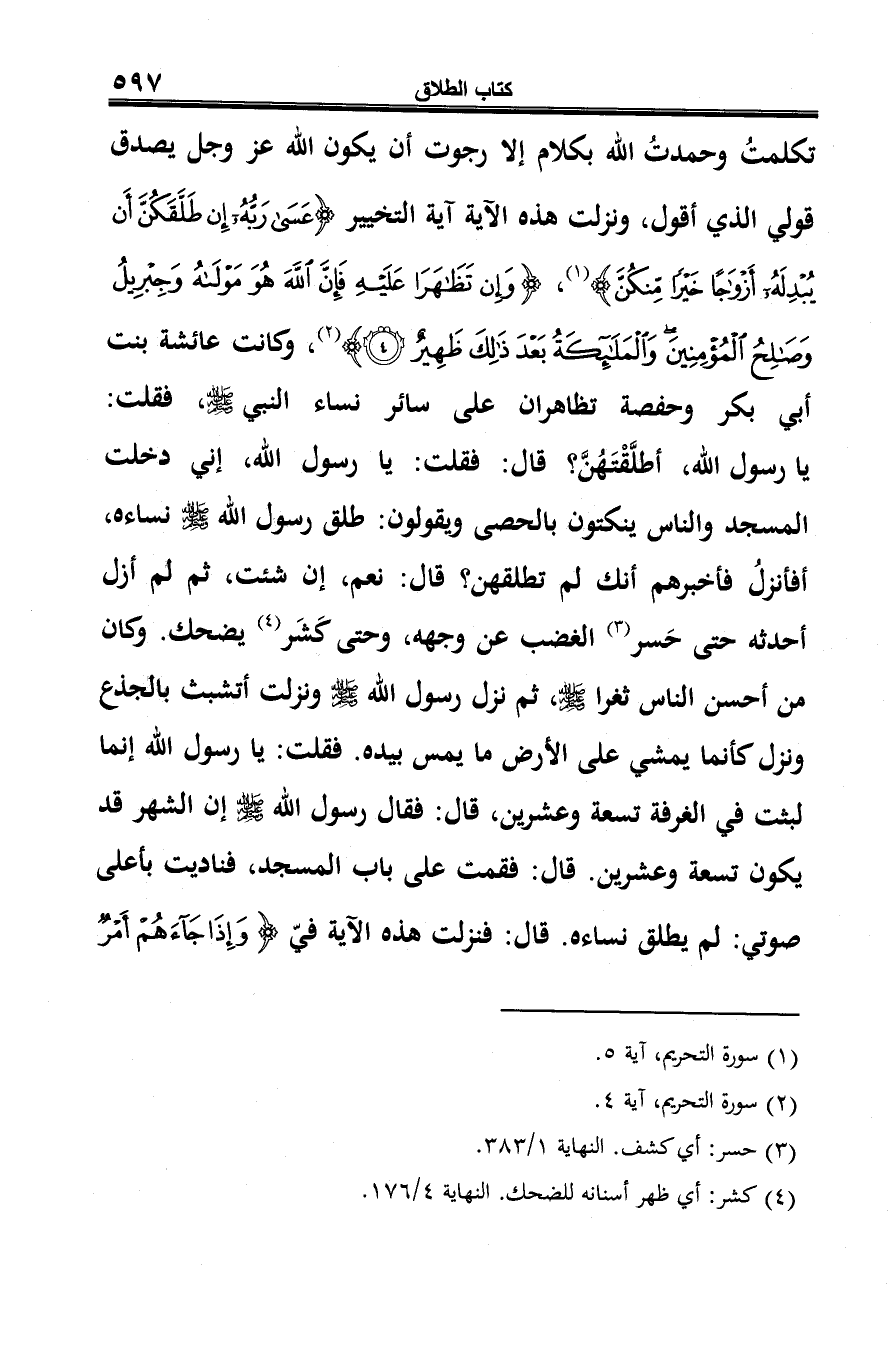 كتاب الطلاق ٥٩٧
تكلمتُ وحمدتُ الله بكلام إلا رجوت أن يكون الله عز وجل يصدق
قولي الذي أقول، ونزلت هذه الآية آية التخيير ﴿عَسَىٰ رَبُّهُۥٓ إِن طَلَّقَكُنَّ أَن
يُبْدِلَهُۥٓ أَزْوَٰجًا خَيْرًا مِّنكُنَّ﴾(١)، ﴿وَإِن تَظَٰهَرَا عَلَيْهِ فَإِنَّ ٱللَّهَ هُوَ مَوْلَىٰهُ وَجِبْرِيلُ
وَصَٰلِحُ ٱلْمُؤْمِنِينَ ۖ وَٱلْمَلَٰٓئِكَةُ بَعْدَ ذَٰلِكَ ظَهِيرٌ ٤﴾(٢)، وكانت عائشة بنت
أبي بكر وحفصة تظاهران على سائر نساء النبي ﷺ، فقلت:
يا رسول الله، أطلَّقْتَهُنَّ؟ قال: فقلت: يا رسول الله، إني دخلت
المسجد والناس ينكتون بالحصى ويقولون: طلق رسول الله ﷺ نساءه،
أفأنزلُ فأخبرهم أنك لم تطلقهن؟ قال: نعم، إن شئت، ثم لم أزل
أحدثه حتى حَسر(٣) الغضب عن وجهه، وحتى كَشَر(٤) يضحك. وكان
من أحسن الناس ثغرا ﷺ، ثم نزل رسول الله ﷺ ونزلت أتشبث بالجذع
ونزل كأنما يمشي على الأرض ما يمس بيده. فقلت: يا رسول الله إنما
لبثت في الغرفة تسعة وعشرين، قال: فقال رسول الله ﷺ إن الشهر قد
يكون تسعة وعشرين. قال: فقمت على باب المسجد، فناديت بأعلى
صوتي: لم يطلق نساءه. قال: فنزلت هذه الآية فيّ ﴿وَإِذَا جَآءَهُمْ أَمْرٌ
(١) سورة التحريم، آية ٥.
(٢) سورة التحريم، آية ٤.
(٣) حسر: أي كشف. النهاية ٣٨٣/١.
(٤) كشر: أي ظهر أسنانه للضحك. النهاية ١٧٦/٤.